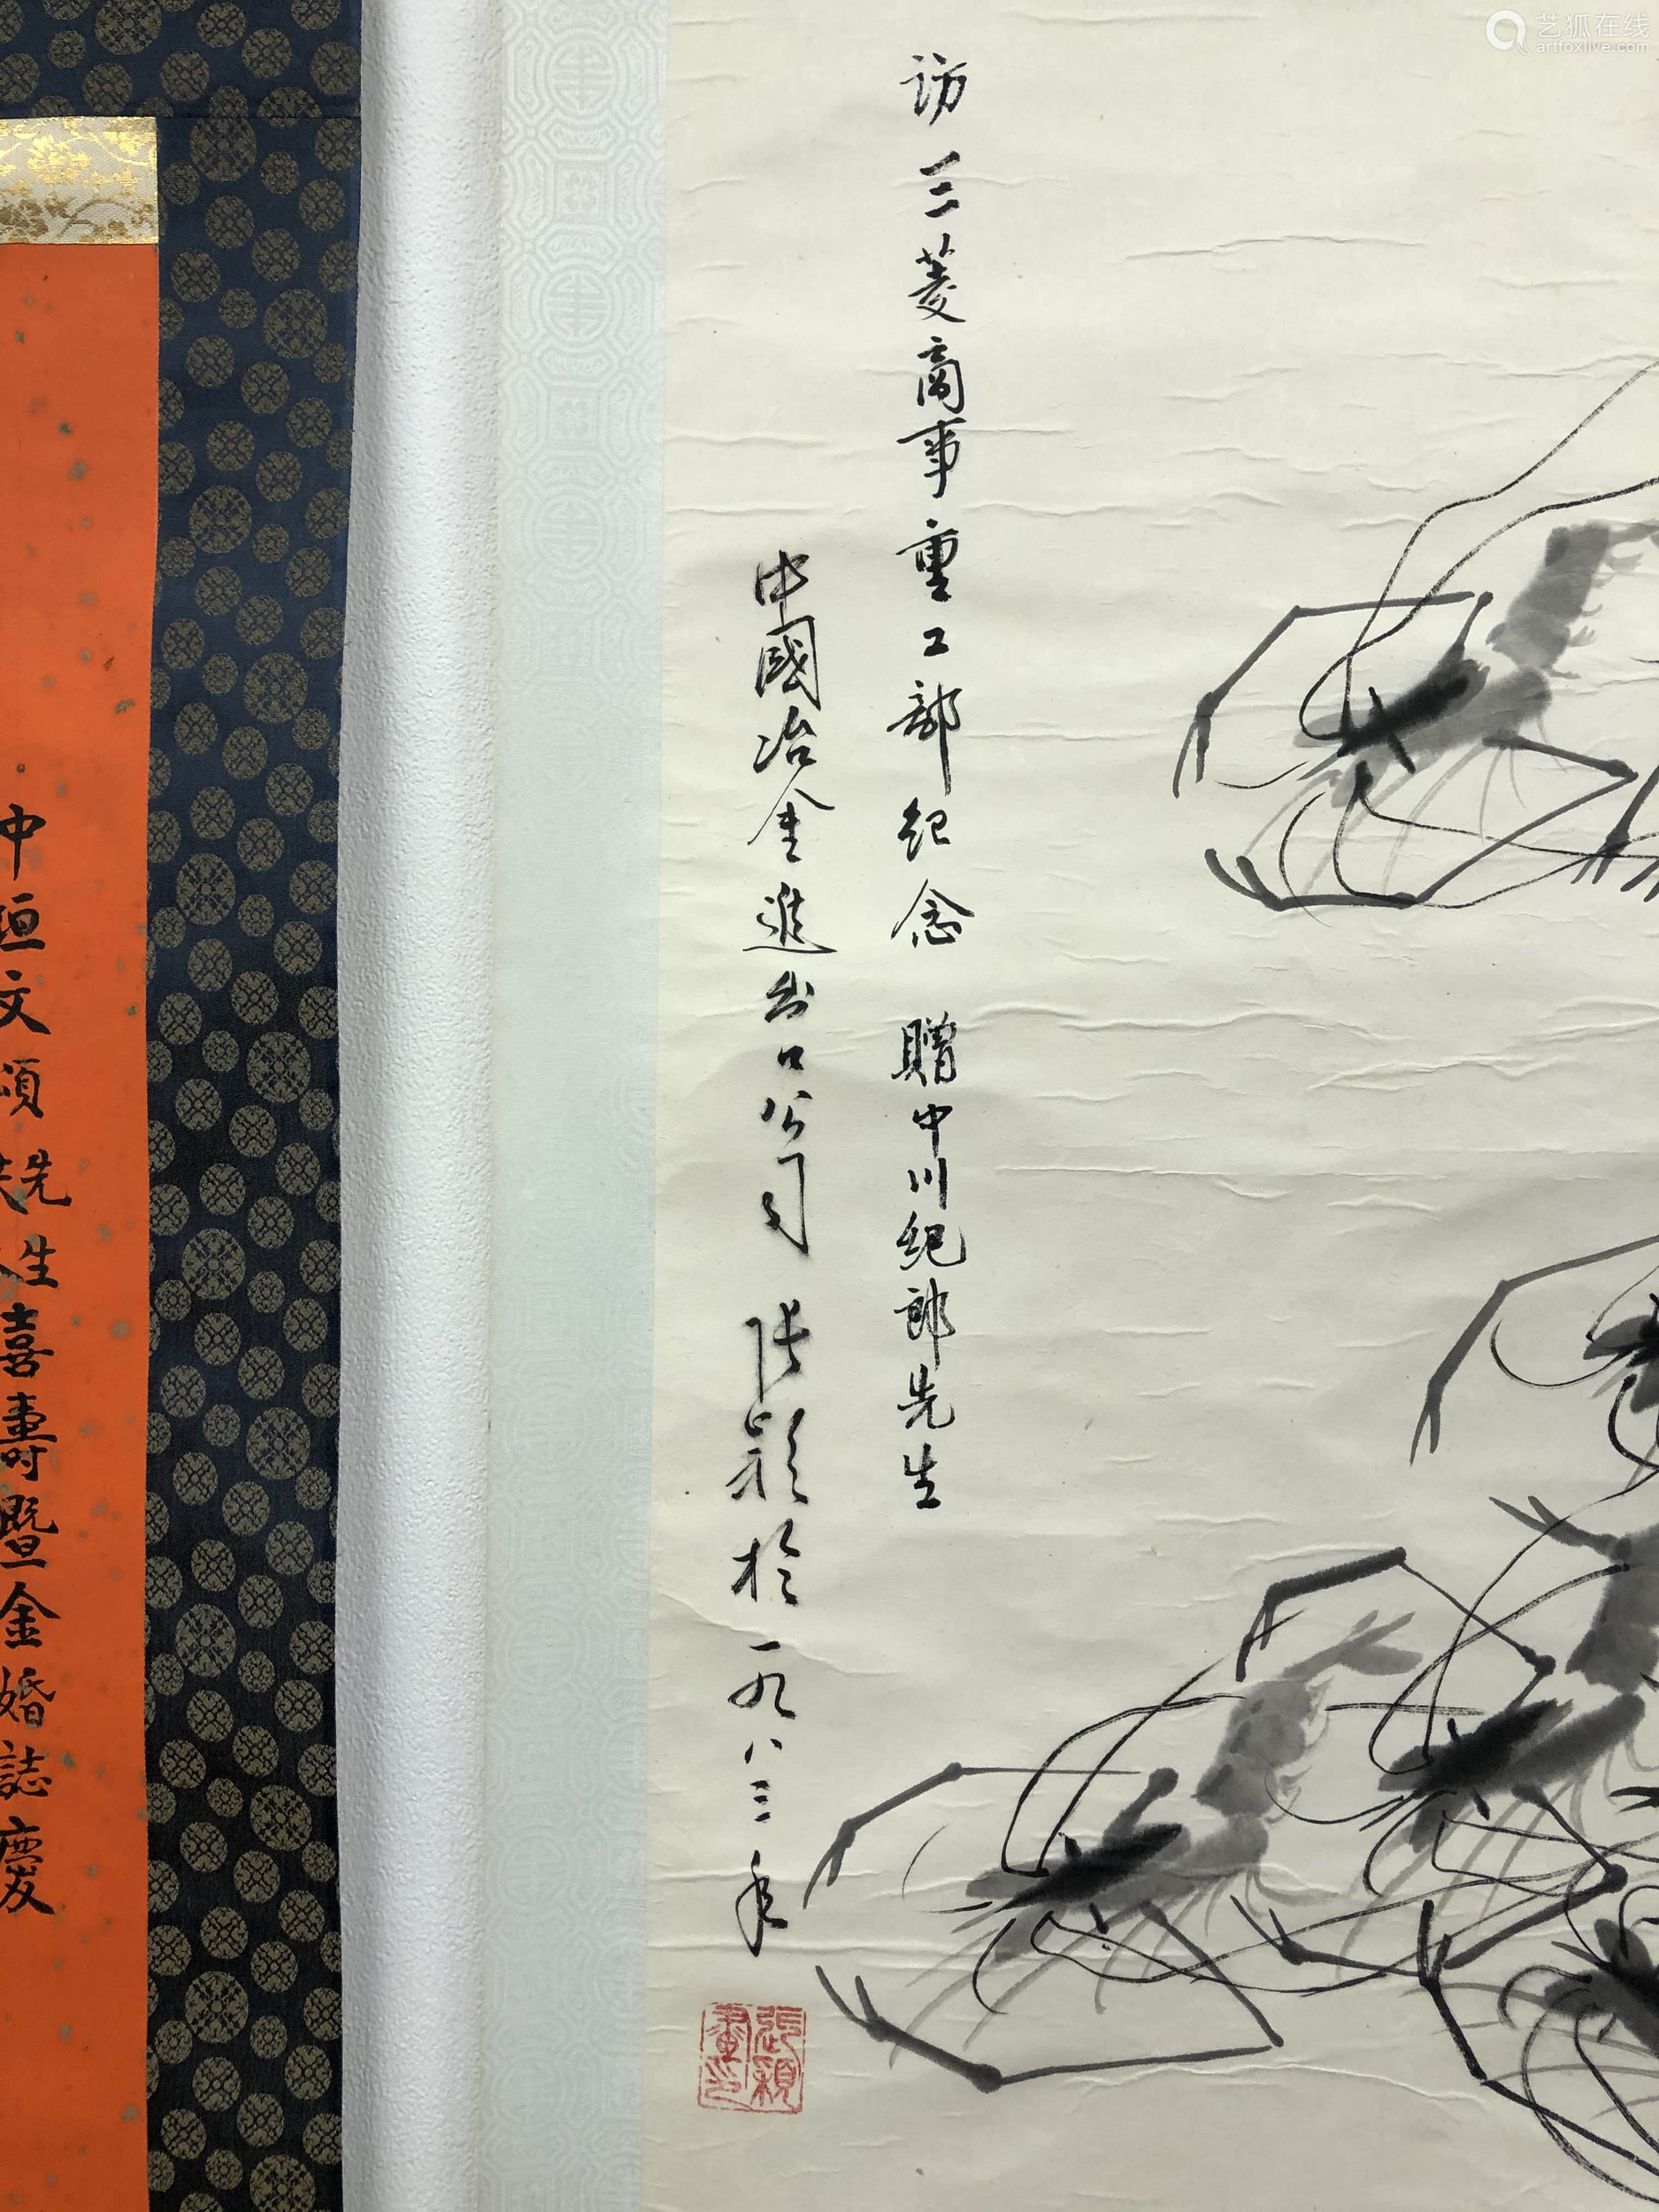 艺狐在线
artfoxlive.com
访三菱商事重工部纪念 贈中川纪郎先生
中國冶金進出口公司 张颖於一九八三年
張穎畫印
中垣文頌先生喜壽暨金婚誌慶